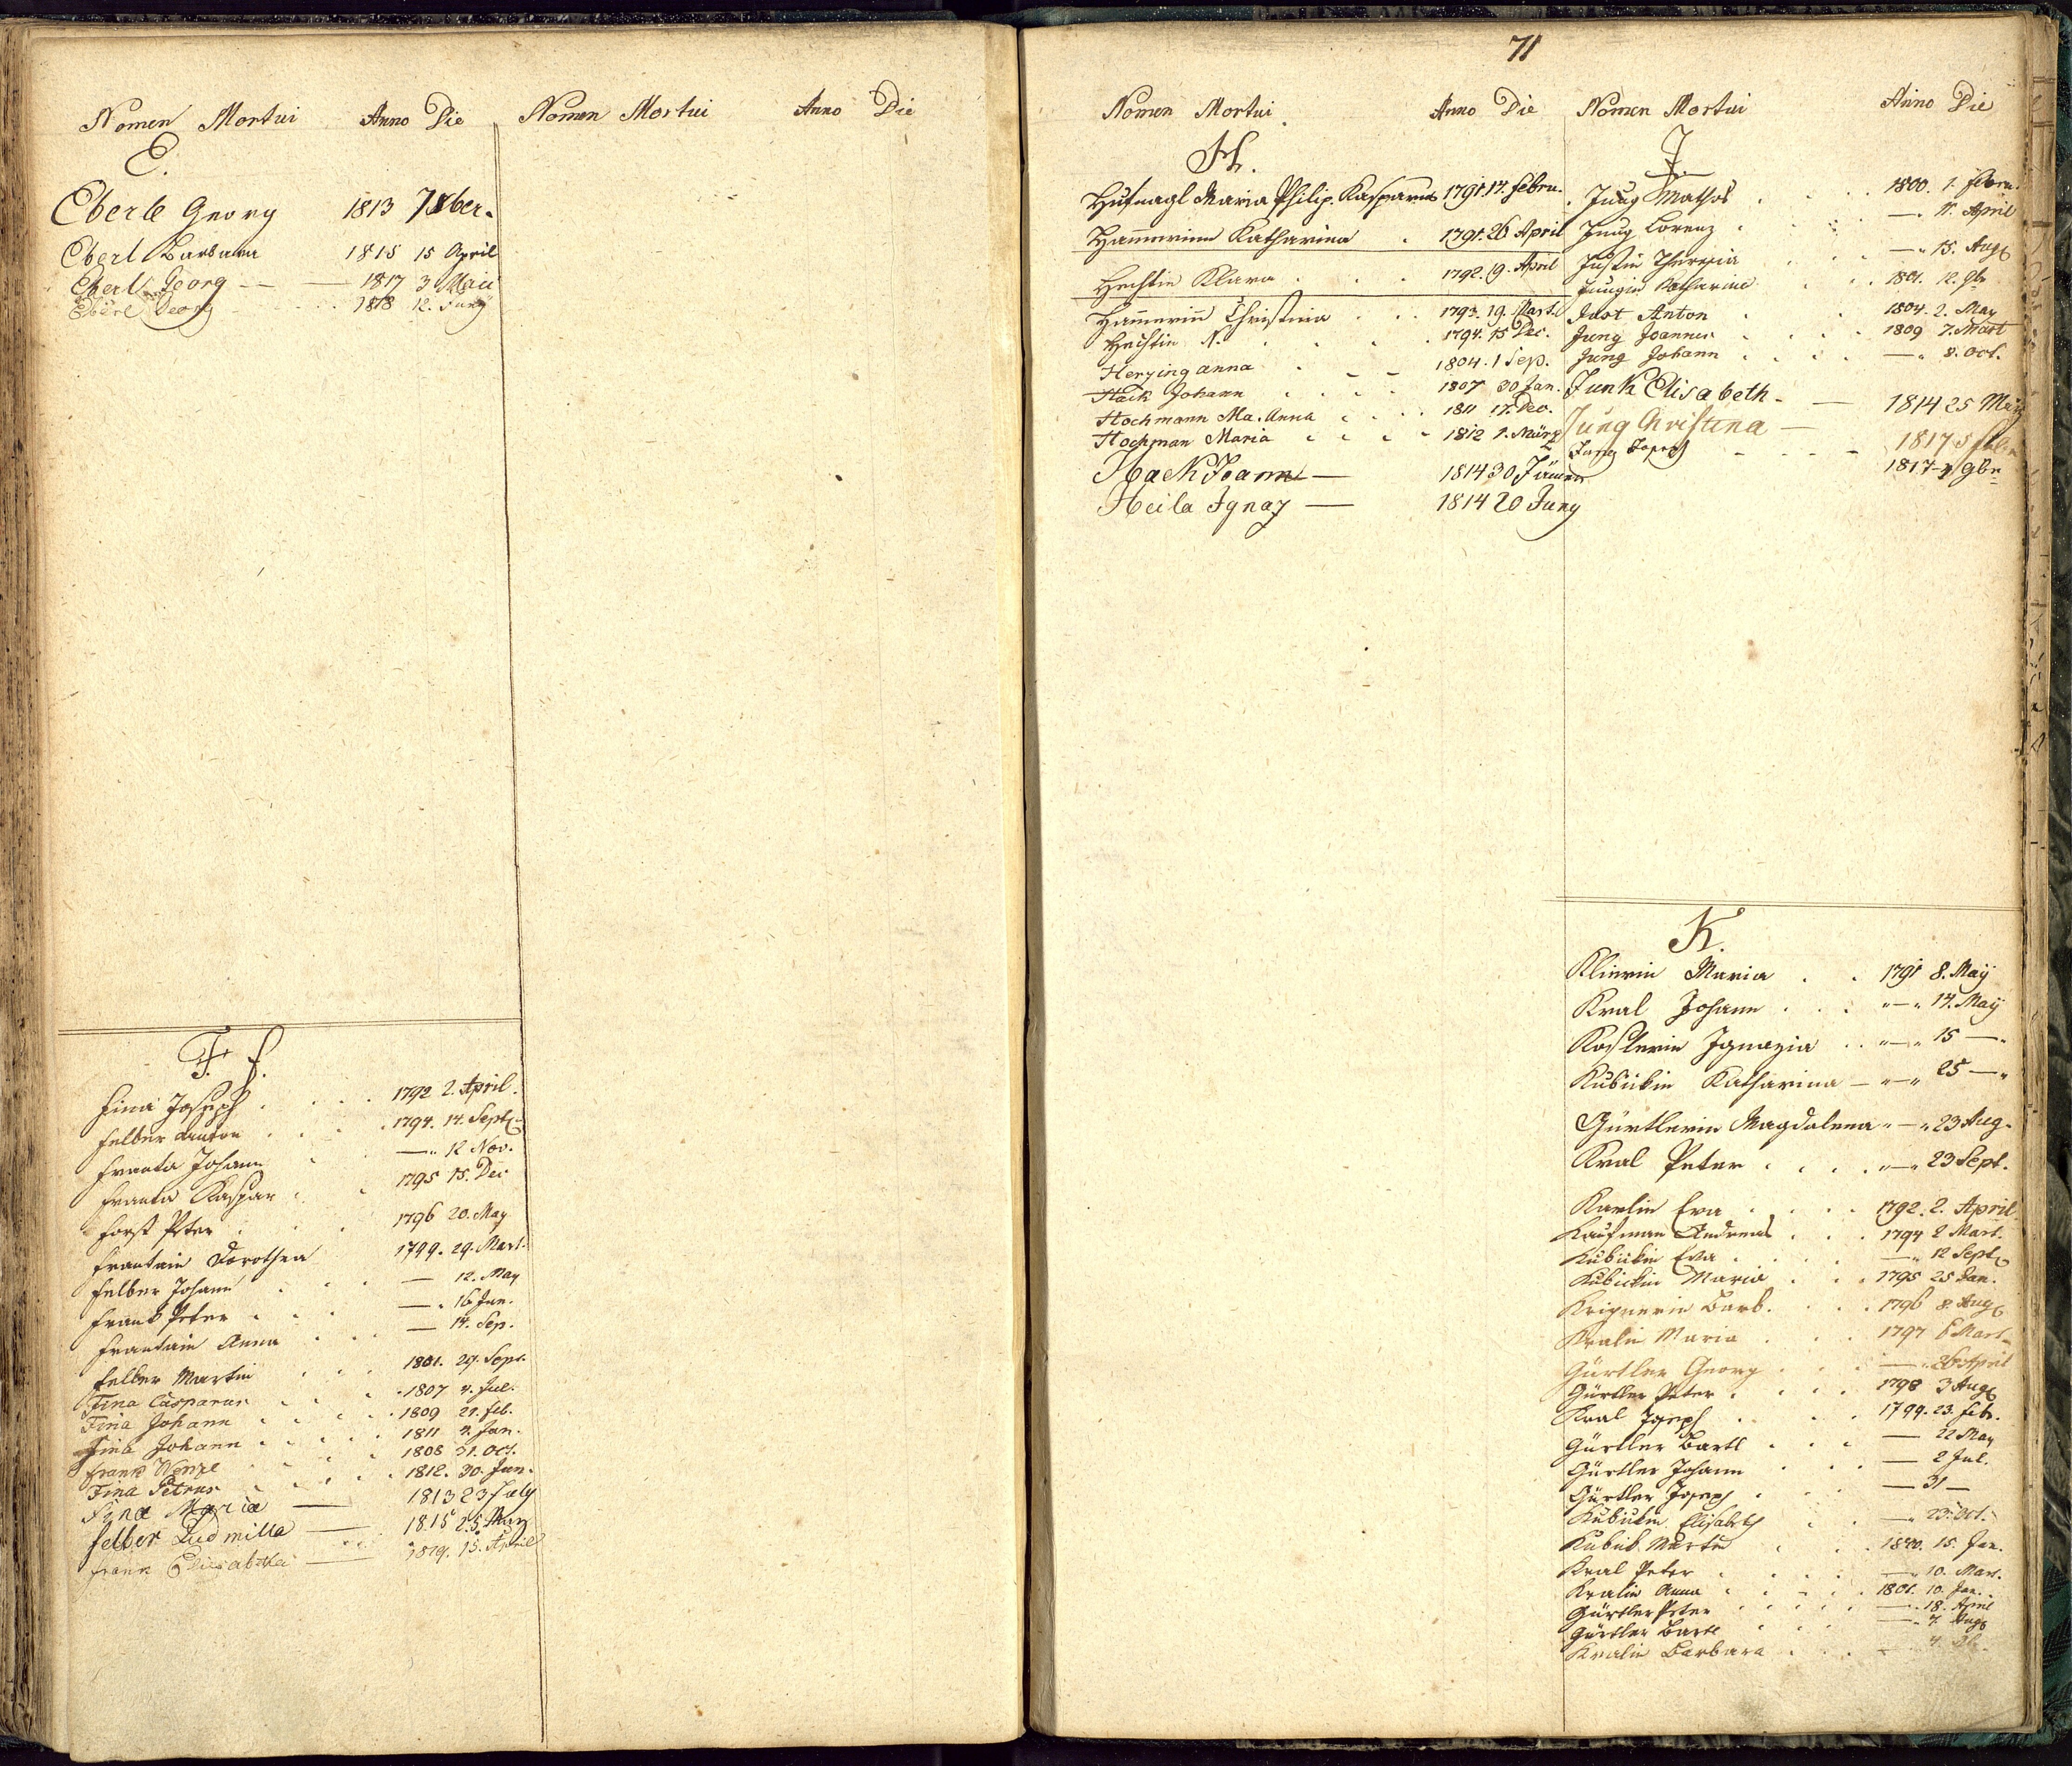 Nomen Mortui Anno Die Nomen Mortui Anno Die
E.
Eberle Georg 1813 7 8ber.
Eberl Barbara 1815 15 April
Eberl Georg 1817 3 Maii
Eberl Georg 1818 12. Juny
F. f.
Fina Joseph 1792 2. April.
Felber Anton 1794. 14. Sept.
Franta Johann — 12 Nov.
Franta Kaspar 1795 15. Dec
Forst Peter 1796 20. May
Frantain Dorothea 1799. 29. Mart.
Felber Johann — 12. May
Frank Peter — 16 Jun.
Frantain Anna — 14. Sep.
Felber Martin 1801. 29. Sept.
Fina Casparus 1807 4. Jul.
Fina Johann 1809 21. feb.
Fina Johann 1811 4. Jan.
Frank Wenzl 1808 31. Oct.
Fina Petrus 1812. 30. Jun.
Fina Maria — 1813 23 July
Felber Ludmilla — 1815 25. May
Frank Elisabetha — 1819. 15. April
71
Nomen Mortui Anno Die Nomen Mortui Anno Die
H.
Hufnagl Maria Philip. Kasparus 1791. 17. Febru.
Hammerinn Katharina 1791. 26 April
Hechtin Klara 1792. 19. April
Hammerinn Christina 1793. 19. Mart.
Hechtin N. 1794. 15 Dec.
Herzing Anna 1804. 1 Sep.
Hack Johann 1807 30 Jan.
Hochmann Ma. Anna 1811 17. Dec.
Hochman Maria 1812 1. März
Hack Joann — 1814 30 Jäner
Heila Ignaz — 1814 20 Juny
J.
Jung Mathes 1800. 1. Febru.
Jung Lorenz — 11. April
Justin Theresia — 15. Aug
Jungin Katharina 1801. 12. 9b
Jost Anton 1804. 2. May
Jung Joannes 1809 7. Mart
Jung Johann — 8. Oct.
Junk Elisabeth — 1814 25 May
Jung Christina — 1817 5
Jung Joseph 1817 9br
K.
Klierin Maria 1791 8. Maÿ
Kral Johann — 14. Maÿ
Kostlerin Ignazia — 15 —
Kubickin Katharina — 25 —
Gürtlerin Magdalena — 23 Aug.
Kral Peter — 23 Sept.
Karlin Eva 1792. 2. April
Kaufman Andreas 1794 2 Mart.
Kubickin Eva — 12 Sept
Kubickin Maria 1795 25 Jan.
Kriznerin Barb. 1796 8. Aug
Kralin Maria 1797 6 Mart
Gürtler Georg — 26 April
Gürtler Peter 1798 3 Aug
Kral Joseph 1799. 23. feb.
Gürtler Bartl — 22 May
Gürtler Johann — 2 Jul.
Gürtler Joseph — 31 —
Kubickin Elisabeth — 23. Oct.
Kubik Martin 1800. 15. Jan.
Kral Peter — 10. Mart.
Kralin Anna 1801. 10. Jan.
Gürtler Peter — 18. April
Gürtler Bartl — 7. Aug
Kralin Barbara — 4.